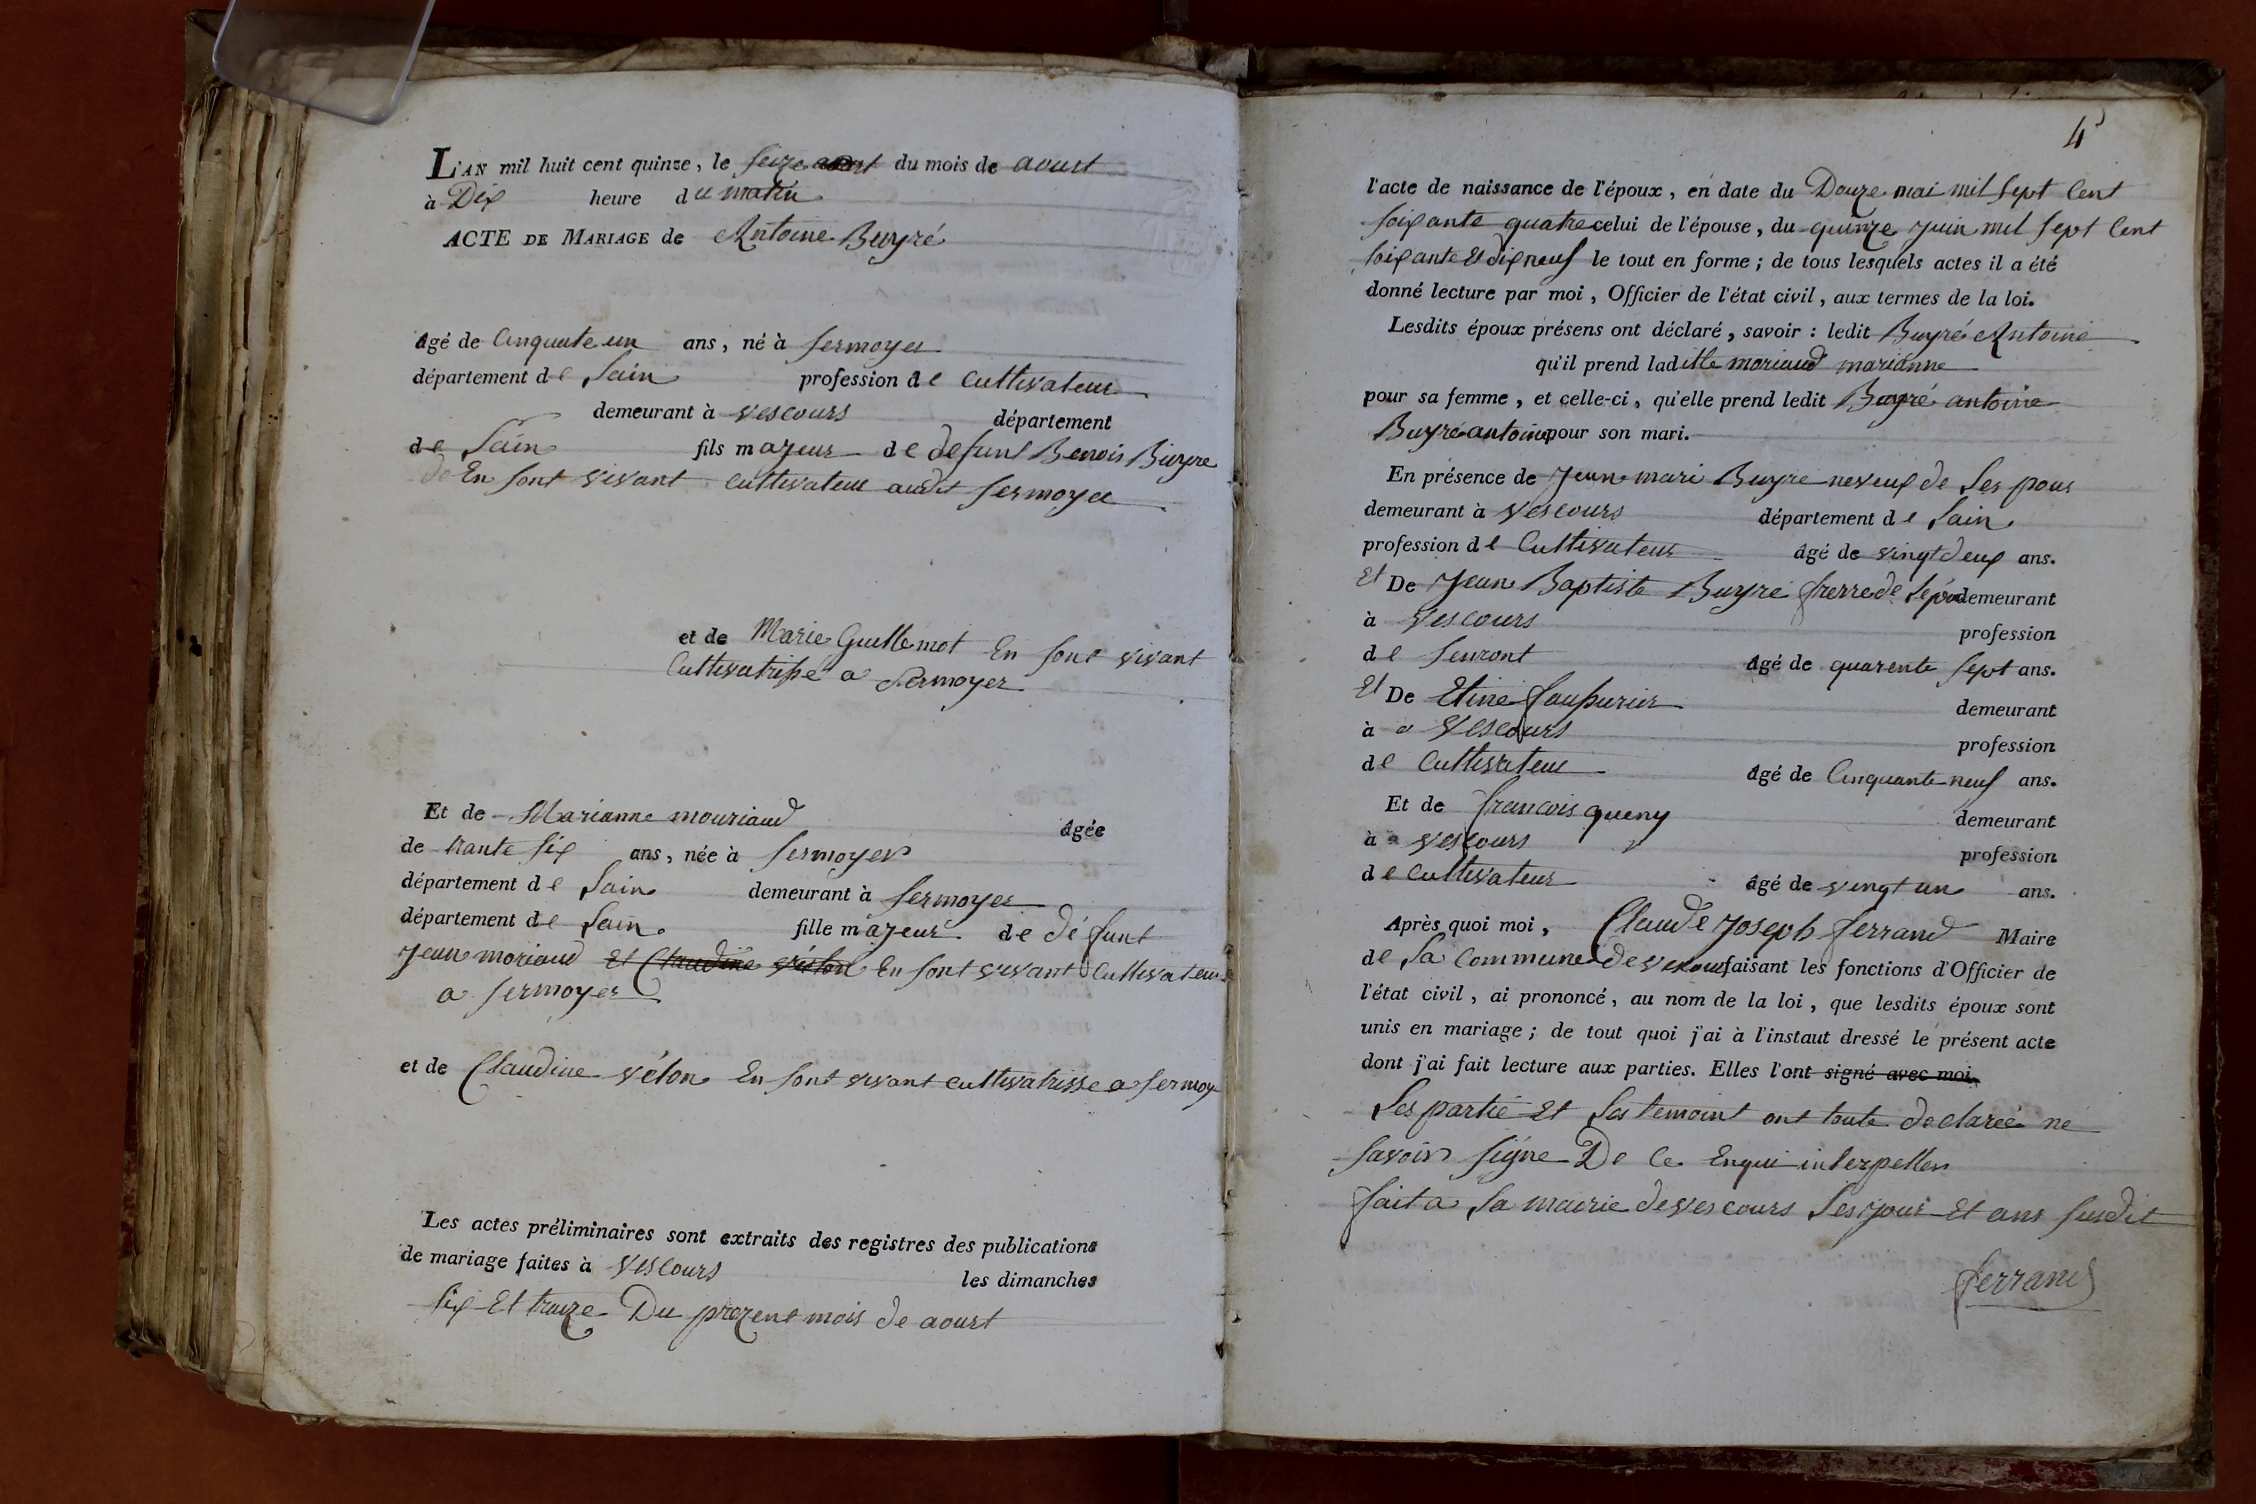 L'AN mil huit cent quinze, le seize aout du mois de aoust
à Dix heure du matin
ACTE DE MARIAGE de Antoine Buyré
âgé de Cinquate un ans, né à sermoyer
département de Lain profession de cultivateur
demeurant à vescours département
de Lain fils majeur de defunt Benois Buyre
de En sont vivant cultivateur audit sermoyer
et de Marie Guillemot En sont vivant
Cultivatrise a Sermoyer
Et de Marianne mouriaud âgée
de trante six ans, née à sermoyer
département de Lain demeurant à sermoyer
département de Lain fille majeur de défunt
Jean moriaud et Claudine vélon En sont vivant Cultivateur
a sermoyer
et de Claudine vélon En sont vivant cultivatrisse a sermoy
Les actes préliminaires sont extraits des registres des publications
de mariage faites à vescours les dimanches
six Et traize Du prezent mois de aoust
4
l'acte de naissance de l'époux, en date du Douze mai mil sept Cent
soixante quatre celui de l'épouse, du quinze juin mil sept Cent
soixante Et dix neuf le tout en forme ; de tous lesquels actes il a été
donné lecture par moi, Officier de l'état civil, aux termes de la loi.
Lesdits époux présens ont déclaré, savoir : ledit Buyré Antoine
qu'il prend ladite moriaud marianne
pour sa femme, et celle-ci, qu'elle prend ledit Buyré antoine
Buyré antoine pour son mari.
En présence de Jean mari Buyre neveux de Les pous
demeurant à vescours département de Lain
profession de Cultivateur âgé de vingt deux ans.
Et De Jean Baptiste Buyre frerre de demeurant
à vescours profession
de âgé de quarente sept ans.
Et De Etine demeurant
à a vescours profession
de Cultivateur âgé de Cinquante neuf ans.
Et de francois queny demeurant
à a vescours profession
de Cultivateur âgé de vingt un ans.
Après quoi moi, Claude Joseph ferrand Maire
de La Commune de vescours faisant les fonctions d'Officier de
l'état civil, ai prononcé, au nom de la loi, que lesdits époux sont
unis en mariage ; de tout quoi j'ai à l'instaut dressé le présent acte
dont j'ai fait lecture aux parties. Elles l'ont signé avec moi
Les partie Et Les temoint ont toute declareé ne
savoir signe De ce Enqui interpeller
fait a La mairie de vescours Les jour Et ans susdit
ferrand